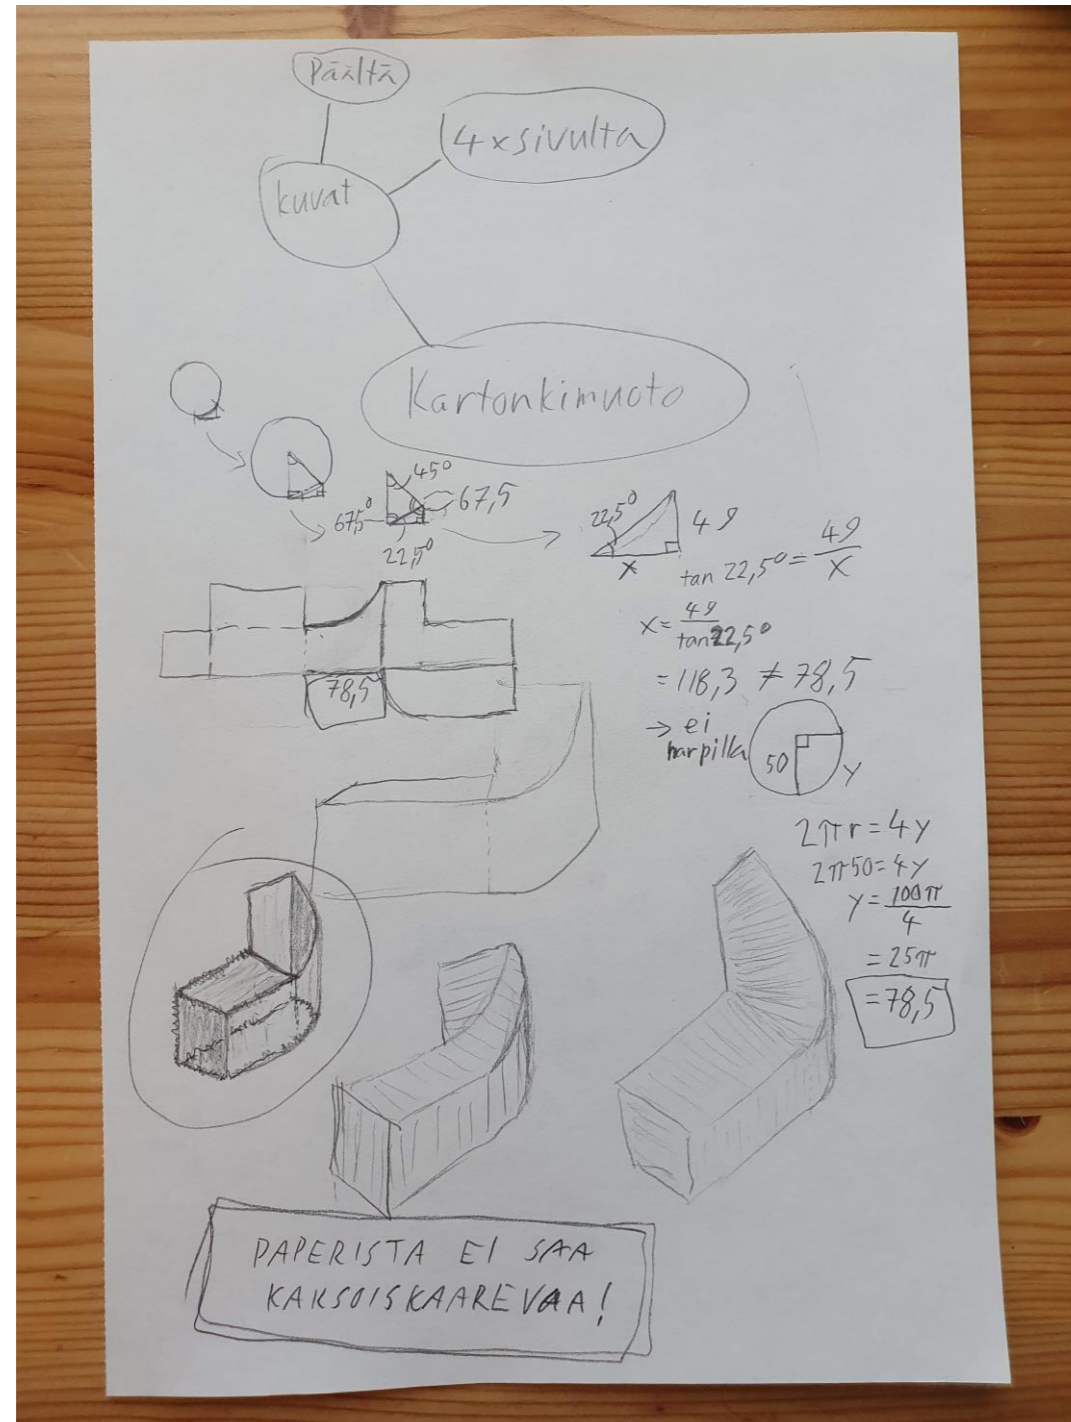 Päältä
4xsivulta
kuvat
Kartonkimuoto
45°
67,5
67,5°
22,5°
22,5°
49
x
tan 22,5° = 49/x
x = 49/tan22,5°
= 118,3 ≠ 78,5
→ ei
harpilla
78,5
50
y
2πr = 4y
2π50 = 4y
y = 100π/4
= 25π
= 78,5
PAPERISTA EI SAA
KAKSOISKAAREVAA!